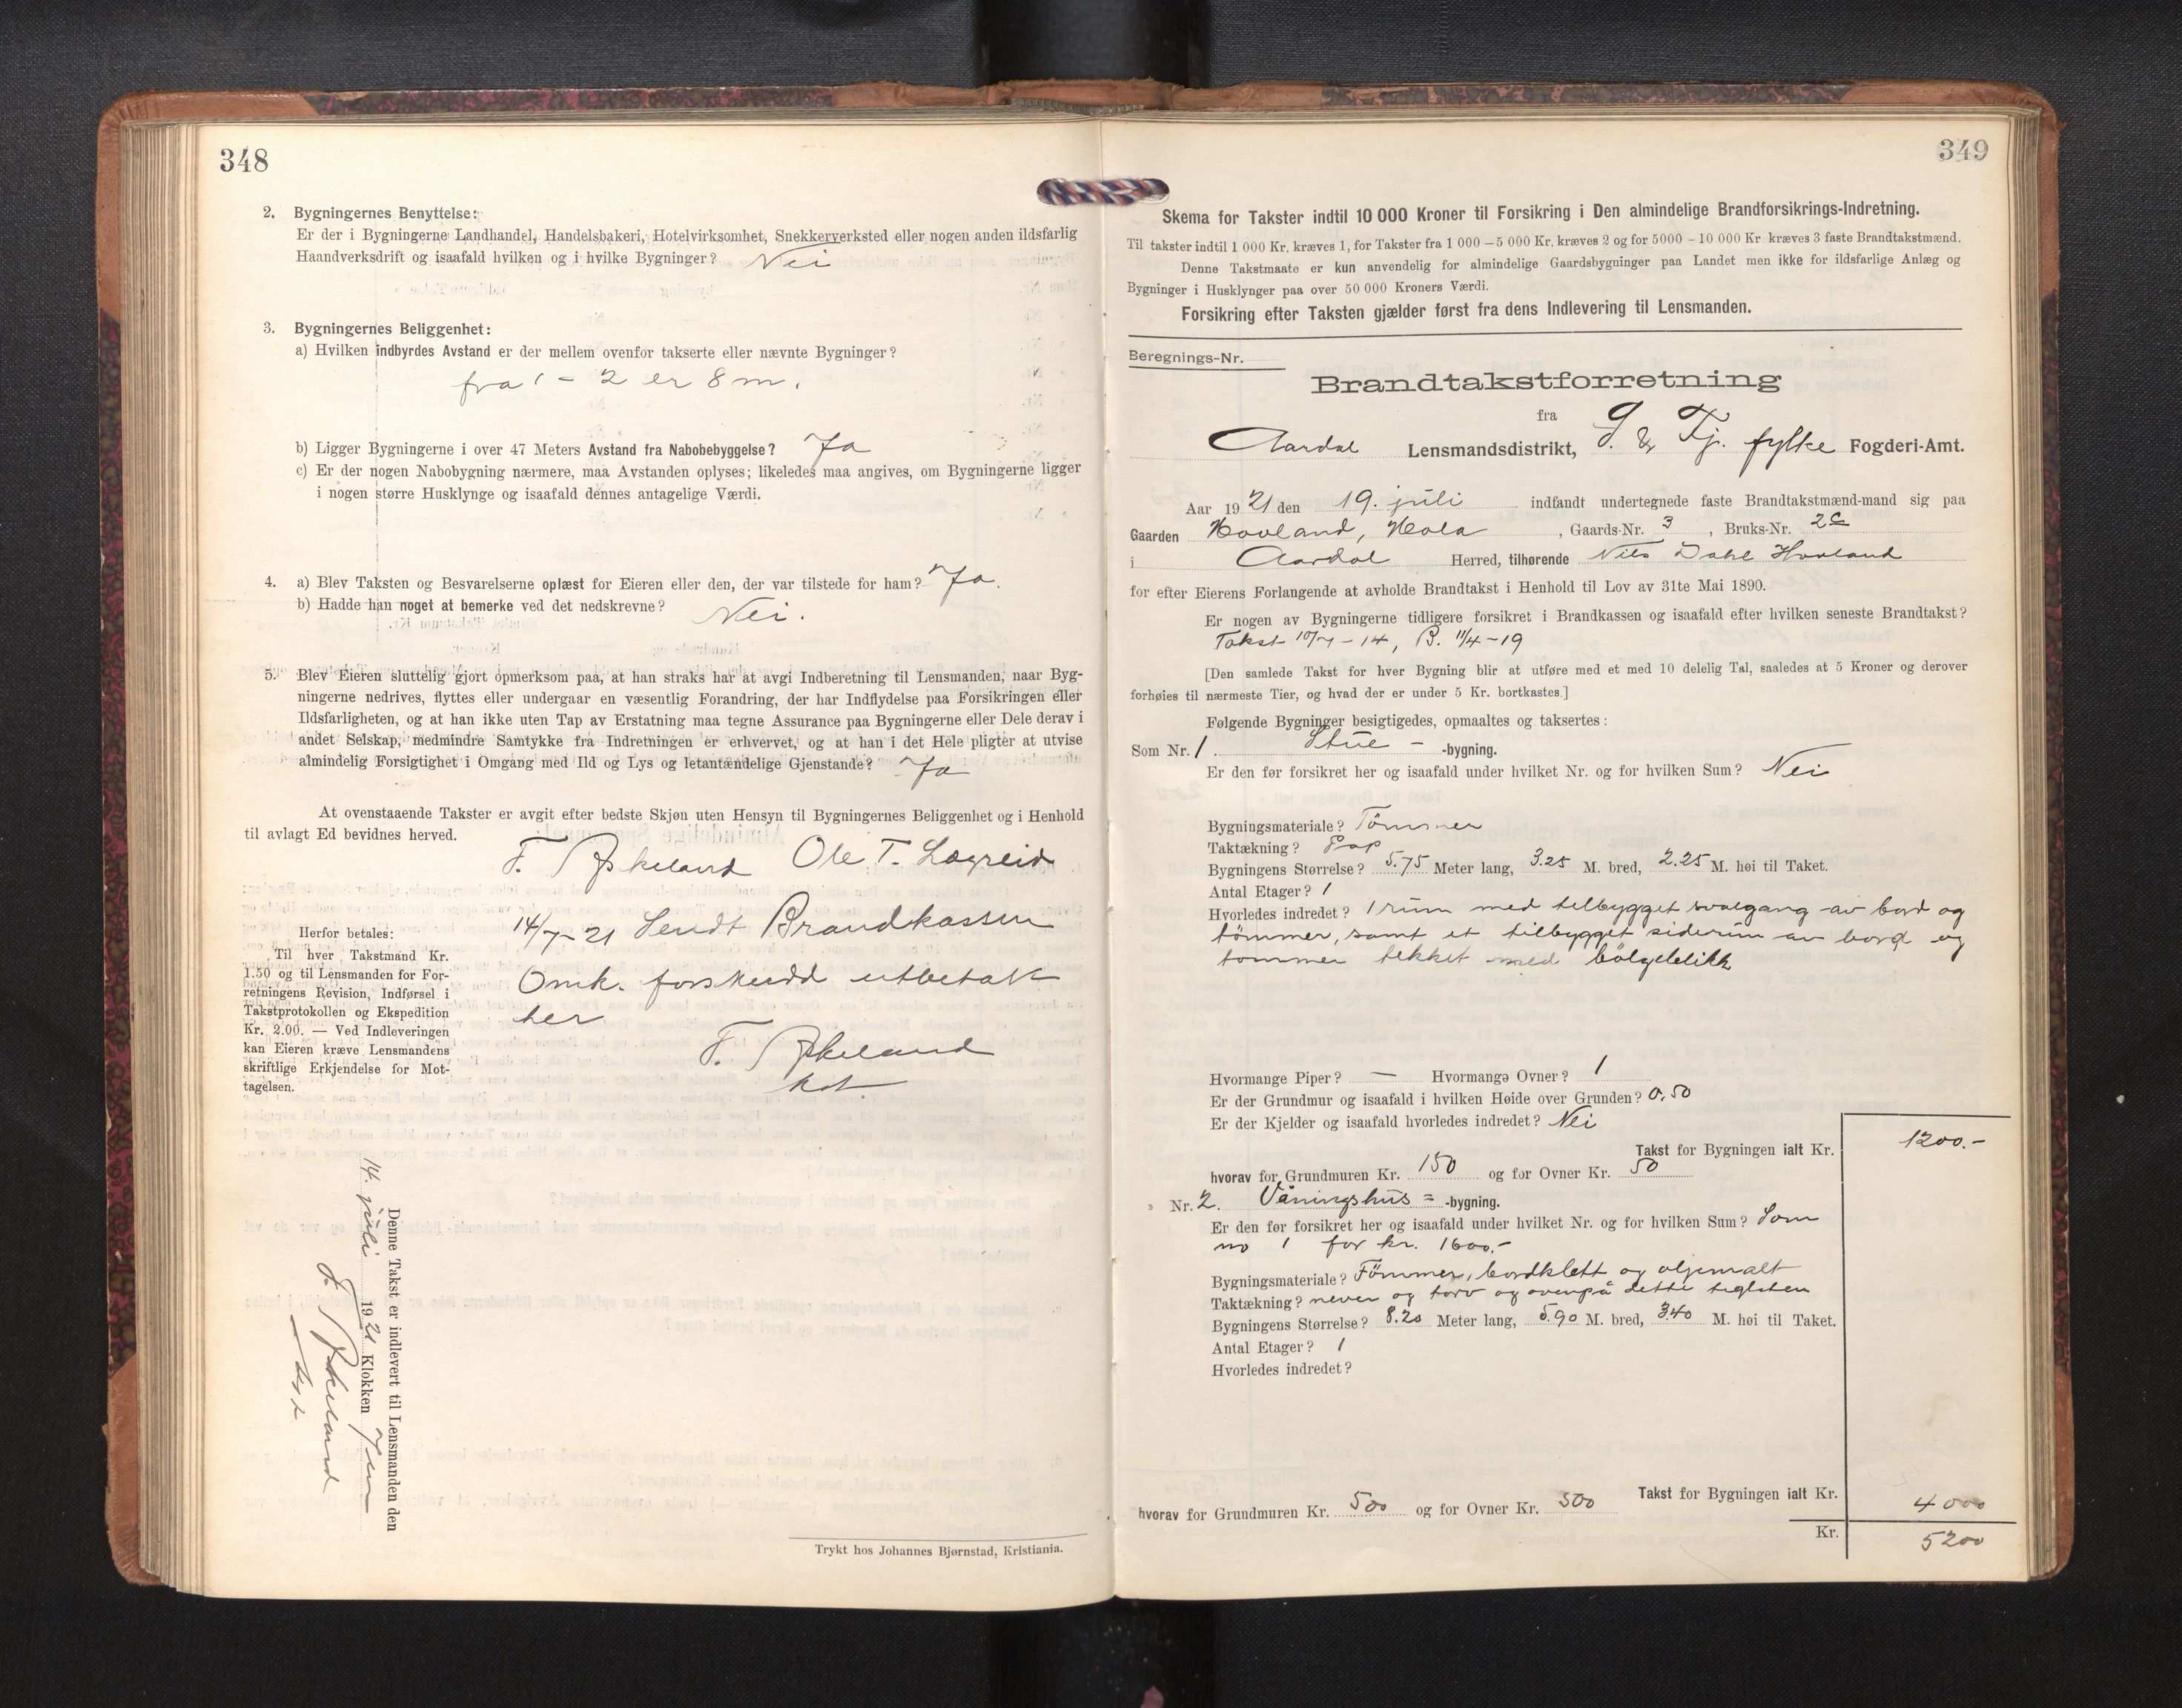 348
2. Bygningernes Benyttelse:
Er der i Bygningerne Landhandel, Handelsbakeri, Hotelvirksomhet, Snekkerverksted eller nogen anden ildsfarlig
Haandverksdrift og isaafald hvilken og i hvilke Bygninger? Nei
3. Bygningernes Beliggenhet:
a) Hvilken indbyrdes Avstand er der mellem ovenfor takserte eller nævnte Bygninger?
fra 1 - 2 er 8 m.
b) Ligger Bygningerne i over 47 Meters Avstand fra Nabobebyggelse? Ja
c) Er der nogen Nabobygning nærmere, maa Avstanden oplyses; likeledes maa angives, om Bygningerne ligger
i nogen større Husklynge og isaafald dennes antagelige Værdi.
4. a) Blev Taksten og Besvarelserne oplæst for Eieren eller den, der var tilstede for ham? Ja.
b) Hadde han noget at bemerke ved det nedskrevne? Nei.
5. Blev Eieren sluttelig gjort opmerksom paa, at han straks har at avgi Indberetning til Lensmanden, naar Byg-
ningerne nedrives, flyttes eller undergaar en væsentlig Forandring, der har Indflydelse paa Forsikringen eller
Ildsfarligheten, og at han ikke uten Tap av Erstatning maa tegne Assurance paa Bygningerne eller Dele derav i
andet Selskap, medmindre Samtykke fra Indretningen er erhvervet, og at han i det Hele pligter at utvise
almindelig Forsigtighet i Omgang med Ild og Lys og letantændelige Gjenstande? Ja
At ovenstaaende Takster er avgit efter bedste Skjøn uten Hensyn til Bygningernes Beliggenhet og i Henhold
til avlagt Ed bevidnes herved.
Ole T. Lægreid
14/7-21 Sendt Brandkassen
Omk. forskudd utbetalt
her
Herfor betales:
Til hver Takstmand Kr.
1.50 og til Lensmanden for For-
retningens Revision, Indførsel i
Takstprotokollen og Ekspedition
Kr. 2.00. — Ved Indleveringen
kan Eieren kræve Lensmandens
skriftlige Erkjendelse for Mot-
tagelsen.
Denne Takst er indlevert til Lensmanden den
14. juli 1921 Klokken
Trykt hos Johannes Bjørnstad, Kristiania.
349
Skema for Takster indtil 10 000 Kroner til Forsikring i Den almindelige Brandforsikrings-Indretning.
Til takster indtil 1 000 Kr. kræves 1, for Takster fra 1 000 – 5 000 Kr. kræves 2 og for 5000 – 10 000 Kr kræves 3 faste Brandtakstmænd.
Denne Takstmaate er kun anvendelig for almindelige Gaardsbygninger paa Landet men ikke for ildsfarlige Anlæg og
Bygninger i Husklynger paa over 50 000 Kroners Værdi.
Forsikring efter Taksten gjælder først fra dens Indlevering til Lensmanden.
Beregnings-Nr.
Brandtakstforretning
fra
Aardal Lensmandsdistrikt, S. & Fj. fylke Fogderi-Amt.
Aar 1921 den 19. juli indfandt undertegnede faste Brandtakstmænd-mand sig paa
Gaarden Hovland, Hola, Gaards-Nr. 3, Bruks-Nr. 2c
i Aardal Herred, tilhørende Nils Dahl Hovland
for efter Eierens Forlangende at avholde Brandtakst i Henhold til Lov av 31te Mai 1890.
Er nogen av Bygningerne tidligere forsikret i Brandkassen og isaafald efter hvilken seneste Brandtakst?
Takst 10/7-14, B. 11/4-19
[Den samlede Takst for hver Bygning blir at utføre med et med 10 delelig Tal, saaledes at 5 Kroner og derover
forhøies til nærmeste Tier, og hvad der er under 5 Kr. bortkastes.]
Følgende Bygninger besigtigedes, opmaaltes og taksertes:
Som Nr. 1. Stue - -bygning.
Er den før forsikret her og isaafald under hvilket Nr. og for hvilken Sum? Nei
Bygningsmateriale? Tömmer
Taktækning? Pap
Bygningens Størrelse? 5.75 Meter lang, 3.25 M. bred, 2.25 M. høi til Taket.
Antal Etager? 1
Hvorledes indredet? 1 rum med tilbygget svalgang av bord og
tömmer, samt et tilbygget siderum av bord og
tømmer tekket med bölgeblikk
Hvormange Piper? — Hvormange Ovner? 1
Er der Grundmur og isaafald i hvilken Høide over Grunden? 0.50
Er der Kjelder og isaafald hvorledes indredet? Nei
Takst for Bygningen ialt Kr. 1200.-
hvorav for Grundmuren Kr. 150 og for Ovner Kr. 50
» Nr. 2. Våningshus = -bygning.
Er den før forsikret her og isaafald under hvilket Nr. og for hvilken Sum? Som
no 1 for kr. 1600.-
Bygningsmateriale? Tömmer, bordklett og oljemalt
Taktækning? never og torv og ovenpå dette teglsten
Bygningens Størrelse? 8.20 Meter lang, 5.90 M. bred, 3.40 M. høi til Taket.
Antal Etager? 1
Hvorledes indredet?
Takst for Bygningen ialt Kr. 4000
hvorav for Grundmuren Kr. 500 og for Ovner Kr. 500
Kr. 5200